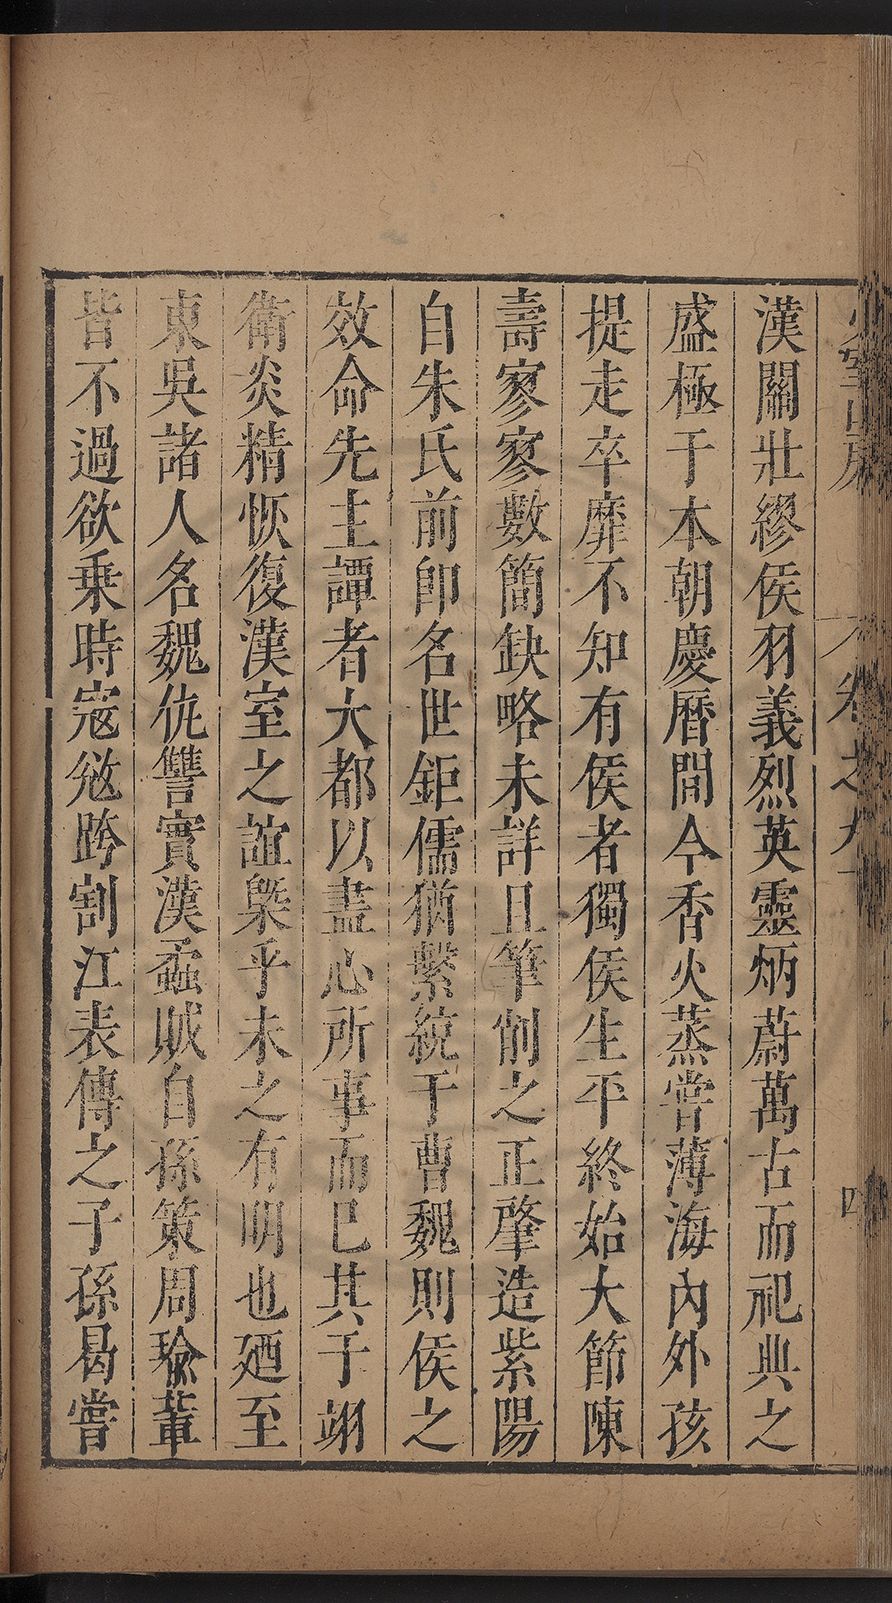 少室山房
卷之九十
四
漢關壯繆侯羽義烈英靈炳蔚萬古而祀典之
盛極于本朝慶曆間今香火蒸嘗薄海內外孩
提走卒靡不知有侯者獨侯生平終始大節陳
壽寥寥數簡缺略未詳且筆削之正肇造紫陽
自朱氏前即名世鉅儒猶繫統于曹魏則侯之
效命先主譚者大都以盡心所事而已其于翊
衛炎精恢復漢室之誼槩乎未之有明也廼至
東吳諸人名魏仇讐實漢蟊賊自孫策周瑜輩
皆不過欲乘時寇敓跨割江表傳之子孫曷嘗